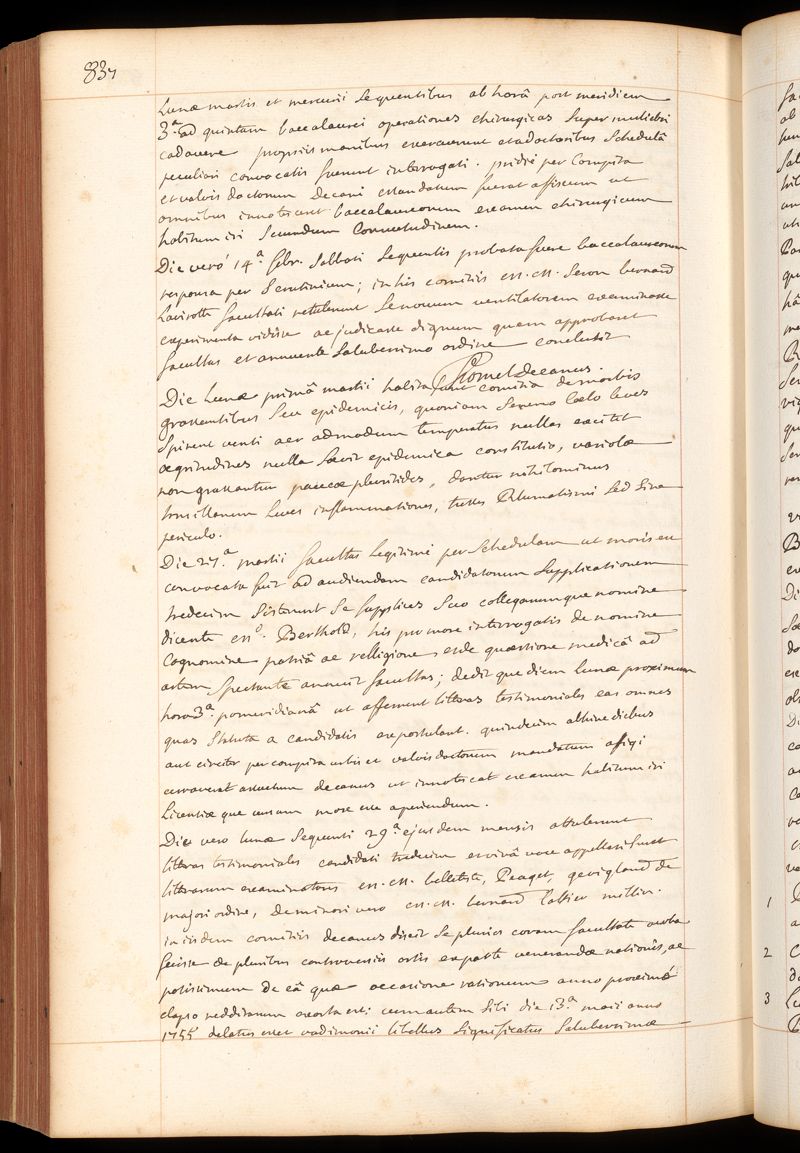 837
Lunæ martis et mercurii sequentibus ab horâ post meridiem
3.ª ad quintam baccalaurei operationes chirurgicas super muliebri
cadavere propriis manibus exercuerunt et a doctoribus schedulâ
peculiari convocatis fuerunt interrogati. pridie per compita
et valvis doctorum decani mandatum fuerat affixum ut
omnibus innotesceret baccalaureorum examen chirurgicum
habitum iri secundum consuetudinem.
Die verò 14.ª febr. sabbati sequentis probata fuere baccalaureorum
responsa per scrutinium; in his comitiis m. m. Seron bernard
Lavirotte facultati retulerunt se novum ventilatorem examinasse
experimenta vidisse ac judicasse dignum quem approbaret
facultas et annuente saluberrimo ordine conclusit
Chomel decanus.
Die Lunæ primâ martii habita sunt comitia de morbis
grassantibus seu epidemicis, quoniam sereno coelo leves
spirent venti aer admodum temperatus nullas excitet
ægritudines nulla sævit epidemica constitutio, variolæ
non grassantur paucæ pleuritides, dantur nihilominus
tonsillarum leves inflammationes, tusses Rhumatismi sed sine
periculo.
Die 27.ª martii facultas legitimè per schedulam ut moris est
convocata fuit ad audiendam candidatorum supplicationem
tredecim sisterunt se supplices suo collegarumque nomine
dicente m.º Berthold, his pro more interrogatis de nomine
Cognomine patriâ ac relligione, unde quæstione medicâ ad
artem spectante annuit facultas; dedit que diem lunæ proximum
horâ 3.ª pomeridianâ ut afferrent litteras testimoniales eas omnes
quas statuta a candidatis expostulant. quindecim abhinc diebus
aut circiter per compita urbis et valvis doctorum mandatum affigi
curaverat decanus ut innotescat examen habitum iri
Licentiæ que cursum more esse aperiendum.
Die vero lunæ sequenti 29.ª ejusdem mensis attulerunt
litteras testimoniales candidati tredecim et vivâ voce appellati sunt
litterarum examinatores m. m. belleteste, Peaget, gevigland de
majori ordine, de minori vero m. m. bernard Lattier millin.
in iisdem comitiis decanus dixit se pluries coram facultate verba
fecisse de pluribus controversiis ortis ex parte venerandæ nationis, ac
potissimum de eâ quæ occasione rationum anno proximè
elapso redditarum exorta est; cum autem sibi die 13.ª maii anno
1755 delatus esset vadimonii libellus significatus saluberrimæ
1
2
3